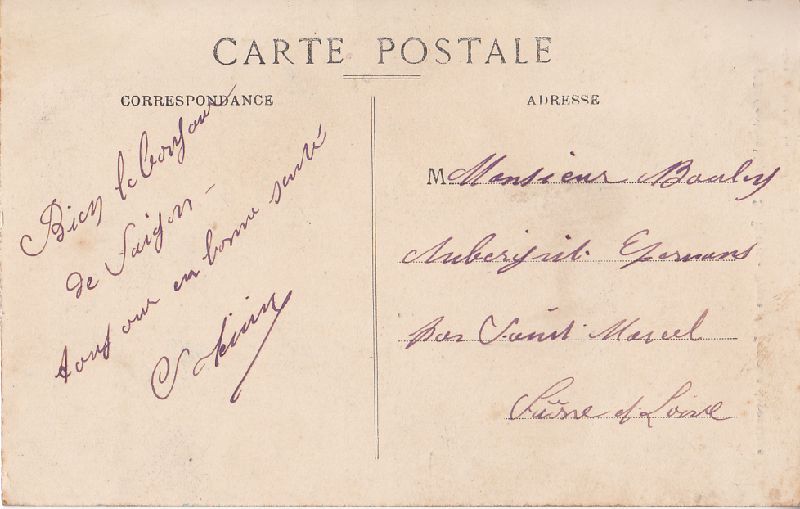 CARTE POSTALE
CORRESPONDANCE
ADRESSE
Bien le bonjour
de Saigon -
toujour en bonne santé
M Monsieur Bouley
Aubergiste Epervans
par Saint Marcel
Saône et Loire